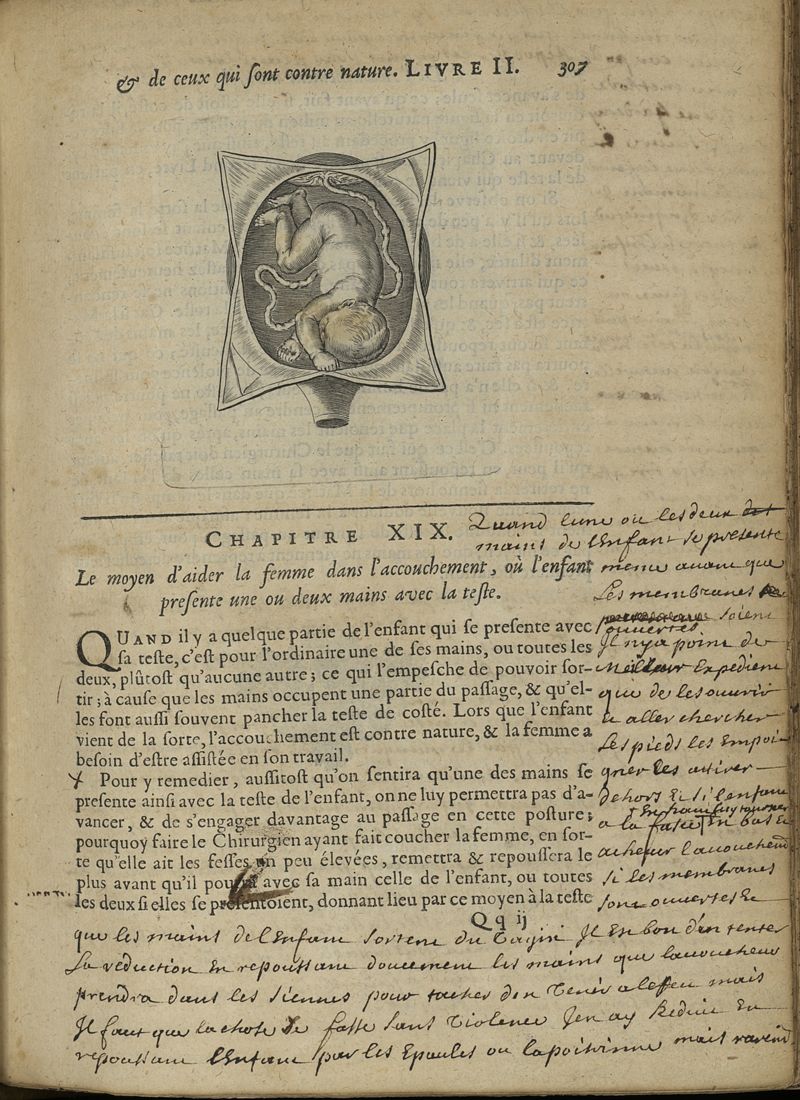 & de ceux qui ſont contre nature. LIVRE II. 307
CHAPITRE XIX.
Le moyen d'aider la femme dans l'accouchement, où l'enfant
preſente une ou deux mains avec la teſte.
QUAND il y a quelque partie de l'enfant qui ſe preſente avec
ſa teſte, c'eſt pour l'ordinaire une de ſes mains, ou toutes les
deux, plûtoſt qu'aucune autre; ce qui l'empeſche de pouvoir ſor-
tir; à cauſe que les mains occupent une partie du paſſage, & qu'el-
les font auſſi ſouvent pancher la teſte de coſté. Lors que l'enfant
vient de la ſorte, l'accouchement eſt contre nature, & la femme a
beſoin d'eſtre aſſiſtée en ſon travail.
Pour y remedier, auſſitoſt qu'on ſentira qu'une des mains ſe
preſente ainſi avec la teſte de l'enfant, on ne luy permettra pas d'a-
vancer, & de s'engager davantage au paſſage en cette poſture;
pourquoy faire le Chirurgien ayant fait coucher la femme, en ſor-
te qu'elle ait les feſſes un peu élevées, remettra & repouſſera le
plus avant qu'il pourra avec ſa main celle de l'enfant, ou toutes
les deux ſi elles ſe preſentoient, donnant lieu par ce moyen à la teſte
Qq ij
Quand lune ou les deux
mains de l'Enfant se presente
meme avant que
Les membranes
soient
ouvertes
Il nya point de
meilleur Expedient
que de les ouvrir
aller chercher
Les pieds les Empoi
gner les attirer
dehors Et si l'enfant
a la face En bas
achever laccouchement
si les membranes
sont ouvertes &
que les mains de l'Enfant sortent du Vagin Il Est bon d'en tenter
La reduction En repoussant doucement les mains que laccoucheur
prendra dans les siennes pour tacher den Venir a
mais
Il faut que la chose se fasse sans Violence Jen ay Reduit En
repoussant l'Enfant par les Epaules ou la poitrinne mais